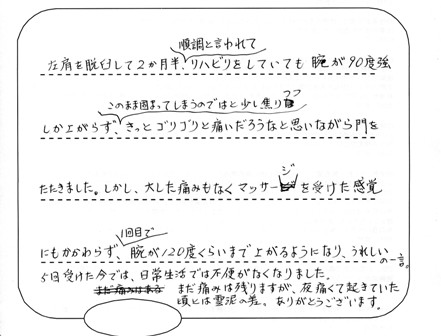 順調と言われて
左肩を脱臼して2か月半、リハビリをしていても腕が90度強
このまま固まってしまうのではと少し焦りつつ
しか上がらず、きっとゴリゴリと痛いだろうなと思いながら門を
たたきました。しかし、大した痛みもなくマッサージを受けた感覚
1回目で
にもかかわらず、腕が120度くらいまで上がるようになり、うれしいの一言。
5回受けた今では、日常生活では不便がなくなりました。
まだ痛みは残りますが、夜痛くて起きていた
頃とは雲泥の差。ありがとうございます。